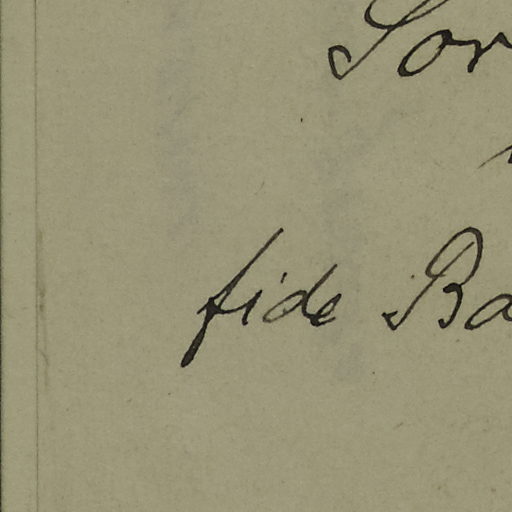 Sor
fide Ba